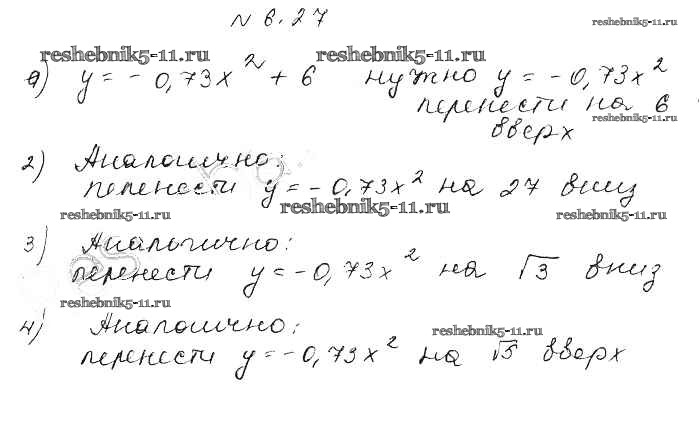 N 6.27
reshebnik5-11.ru
reshebnik5-11.ru reshebnik5-11.ru
а) y = - 0,73x² + 6 нужно y = - 0,73x²
перенести на 6
reshebnik5-11.ru
вверх
2) Аналогично:
перенести y = - 0,73x² на 27 вниз
reshebnik5-11.ru reshebnik5-11.ru reshebnik5-11.ru
3) Аналогично:
перенести y = - 0,73x² на √3 вниз
reshebnik5-11.ru
4) Аналогично:
reshebnik5-11.ru
перенести y = - 0,73x² на √5 вверх